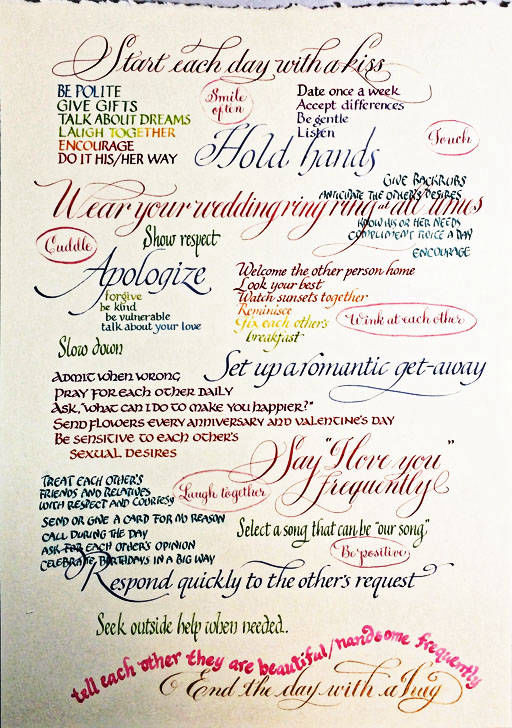 Start each day with a kiss
BE POLITE
GIVE GIFTS
TALK ABOUT DREAMS
LAUGH TOGETHER
ENCOURAGE
DO IT HIS/HER WAY
Smile
often
Date once a week
Accept differences
Be gentle
Listen
Touch
Hold hands
GIVE BACKRUBS
ANTICIPATE THE OTHER'S DESIRES
Wear your wedding ring ring at all times
KNOW HIS OR HER NEEDS
COMPLIMENT TWICE A DAY
ENCOURAGE
Cuddle
Show respect
Apologize
forgive
be kind
be vulnerable
talk about your love
Slow down
Welcome the other person home
Look your best
Watch sunsets together
Reminisce
Fix each other's
breakfast
Wink at each other
Set up a romantic get-away
ADMIT WHEN WRONG
PRAY FOR EACH OTHER DAILY
ASK, "WHAT CAN I DO TO MAKE YOU HAPPIER?"
SEND FLOWERS EVERY ANNIVERSARY AND VALENTINE'S DAY
BE SENSITIVE TO EACH OTHER'S
SEXUAL DESIRES
Say "I love you"
frequently
TREAT EACH OTHER'S
FRIENDS AND RELATIVES
WITH RESPECT AND COURTESY
Laugh together
SEND OR GIVE A CARD FOR NO REASON
CALL DURING THE DAY
ASK FOR EACH OTHER'S OPINION
CELEBRATE BIRTHDAYS IN A BIG WAY
Select a song that can be "our song"
Be positive
Respond quickly to the other's request
Seek outside help when needed..
tell each other they are beautiful/handsome frequently
End the day with a hug